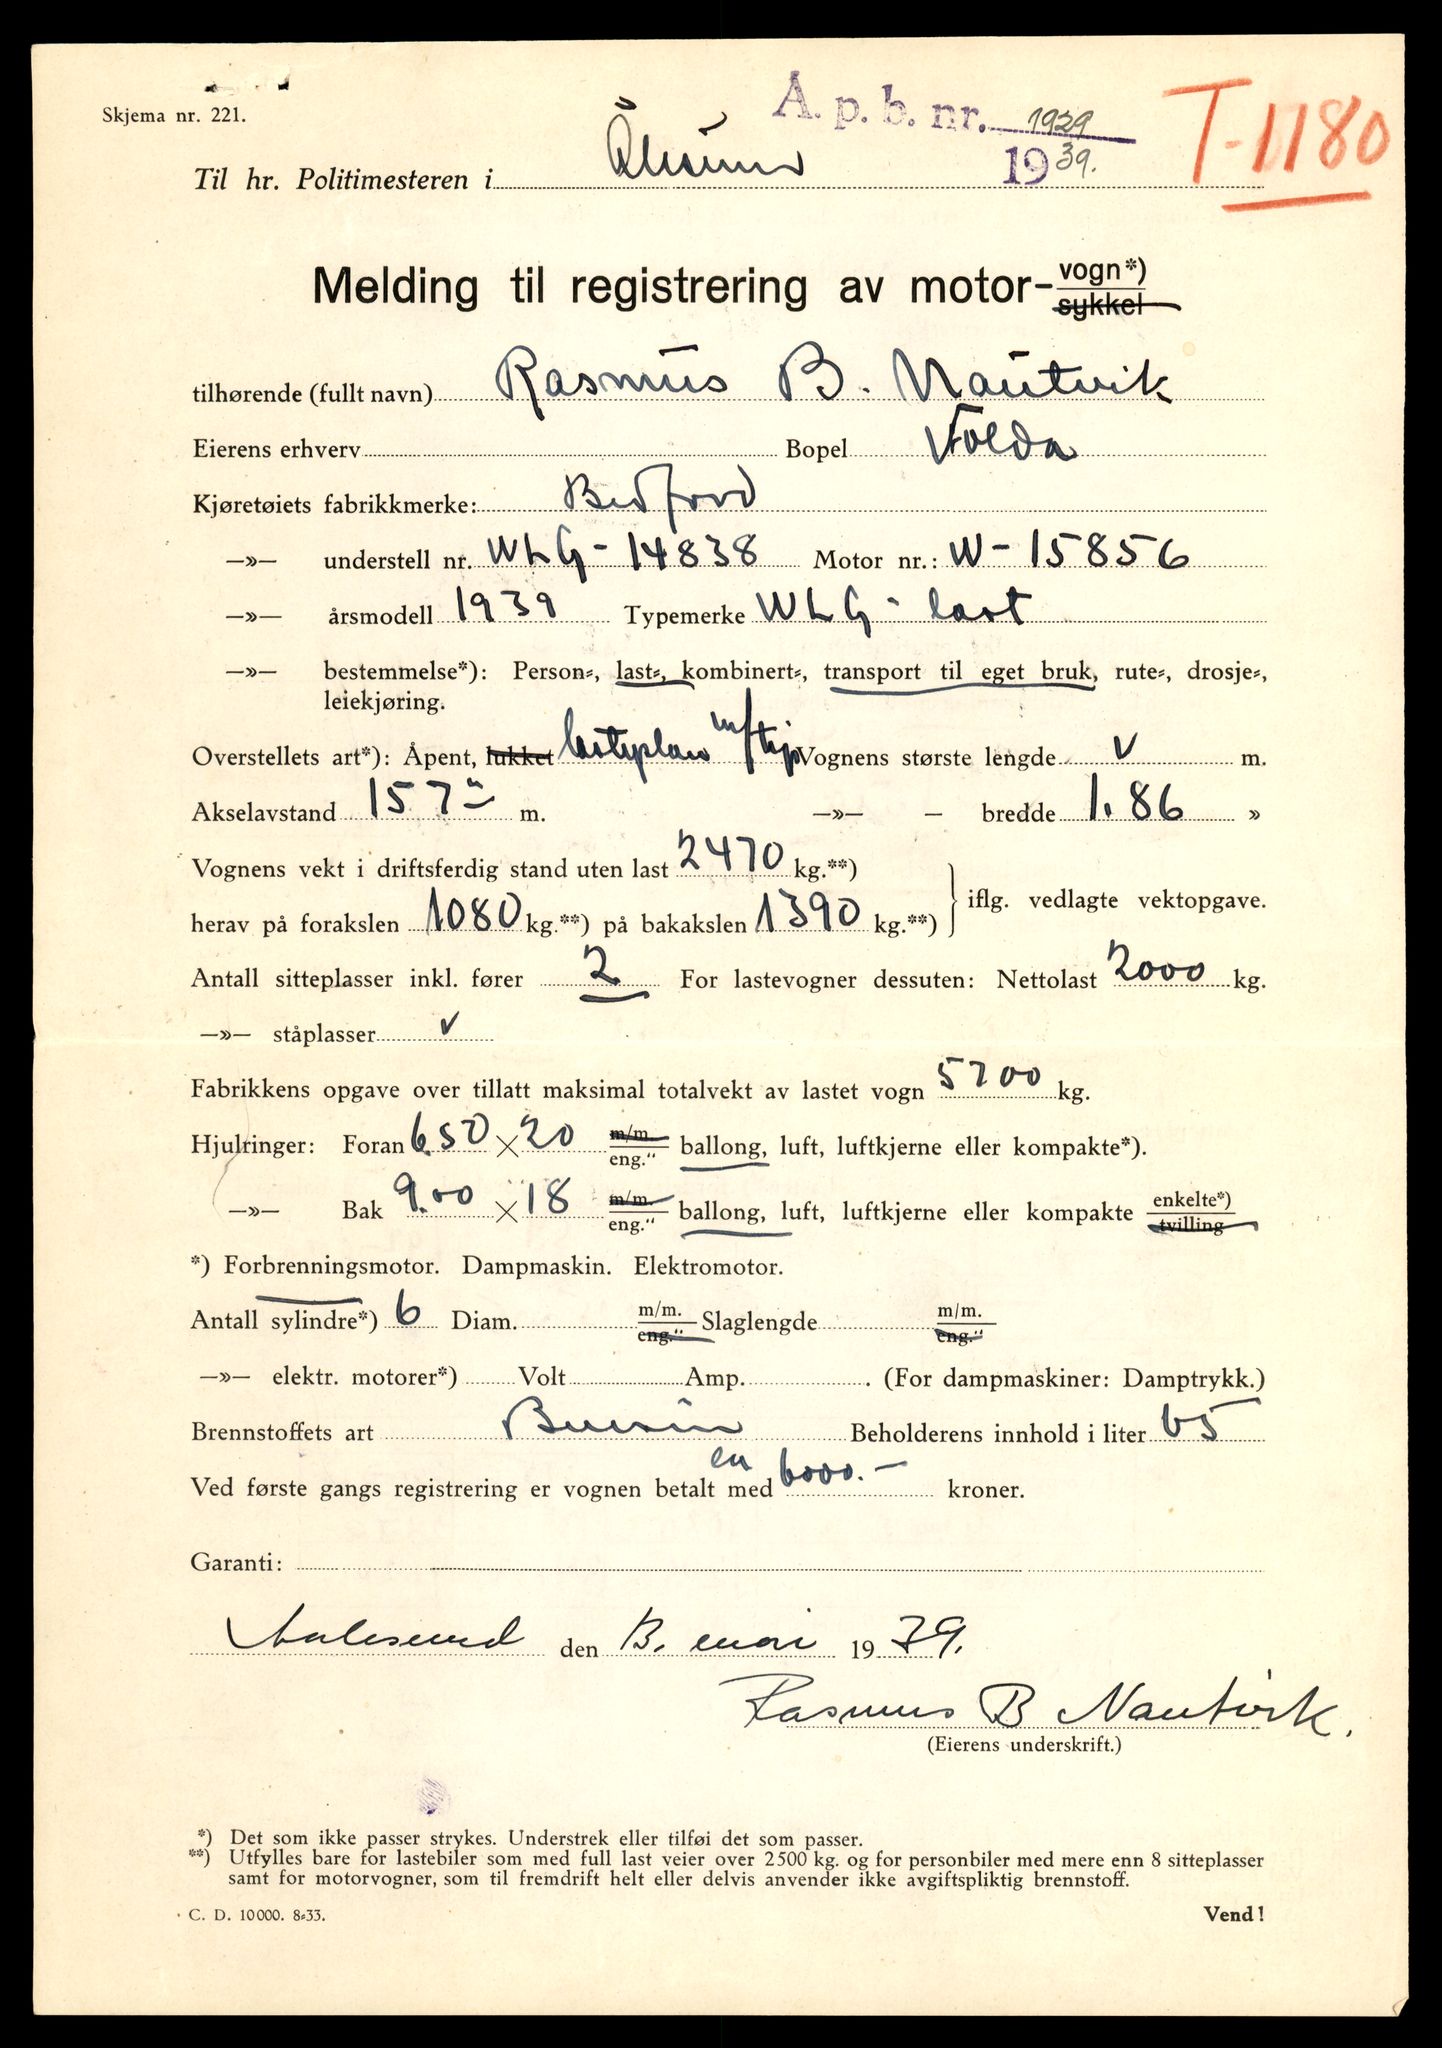 Skjema nr. 221.
Å. p. b. nr. 1929
1939.
T-1180
Til hr. Politimesteren i Ålesund
Melding til registrering av motor- vogn*)
sykkel
tilhørende (fullt navn) Rasmus B. Nautvik
Eierens erhverv Bopel Volda
Kjøretøiets fabrikkmerke: Bedford
—»— understell nr. WLG - 14838 Motor nr.: W - 15856
—»— årsmodell 1939 Typemerke WLG - last
—»— bestemmelse*): Person-, last-, kombinert-, transport til eget bruk, rute-, drosje-,
leiekjøring.
Overstellets art*): Åpent, lukket lasteplan m/tip Vognens største lengde v m.
Akselavstand 157" m. —»— — bredde 1.86 »
Vognens vekt i driftsferdig stand uten last 2470 kg.**)
herav på forakslen 1080 kg.**) på bakakslen 1390 kg.**) iflg. vedlagte vektopgave.
Antall sitteplasser inkl. fører 2 For lastevogner dessuten: Nettolast 2000 kg.
—»— ståplasser v
Fabrikkens opgave over tillatt maksimal totalvekt av lastet vogn 5700 kg.
Hjulringer: Foran 6.50 × 20 m/m. eng." ballong, luft, luftkjerne eller kompakte*).
—»— Bak 9.00 × 18 m/m. eng." ballong, luft, luftkjerne eller kompakte enkelte*) tvilling
*) Forbrenningsmotor. Dampmaskin. Elektromotor.
Antall sylindre*) 6 Diam. m/m. eng." Slaglengde m/m. eng."
—»— elektr. motorer*) Volt Amp. . (For dampmaskiner: Damptrykk.)
Brennstoffets art Bensin Beholderens innhold i liter 65
Ved første gangs registrering er vognen betalt med ca 6000.- kroner.
Garanti:
Aalesund den 13. mai 1939.
Rasmus B Nautvik.
(Eierens underskrift.)
*) Det som ikke passer strykes. Understrek eller tilføi det som passer.
**) Utfylles bare for lastebiler som med full last veier over 2500 kg. og for personbiler med mere enn 8 sitteplasser
samt for motorvogner, som til fremdrift helt eller delvis anvender ikke avgiftspliktig brennstoff.
C. D. 10000. 8-33.
Vend!